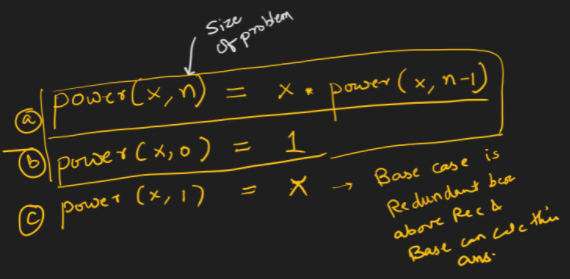 Size
of problem
ⓐ power(x, n) = x * power(x, n-1)
ⓑ power(x, 0) = 1
ⓒ power(x, 1) = x → Base case is
Redundant bcz
above Rec &
Base can calc this
ans.